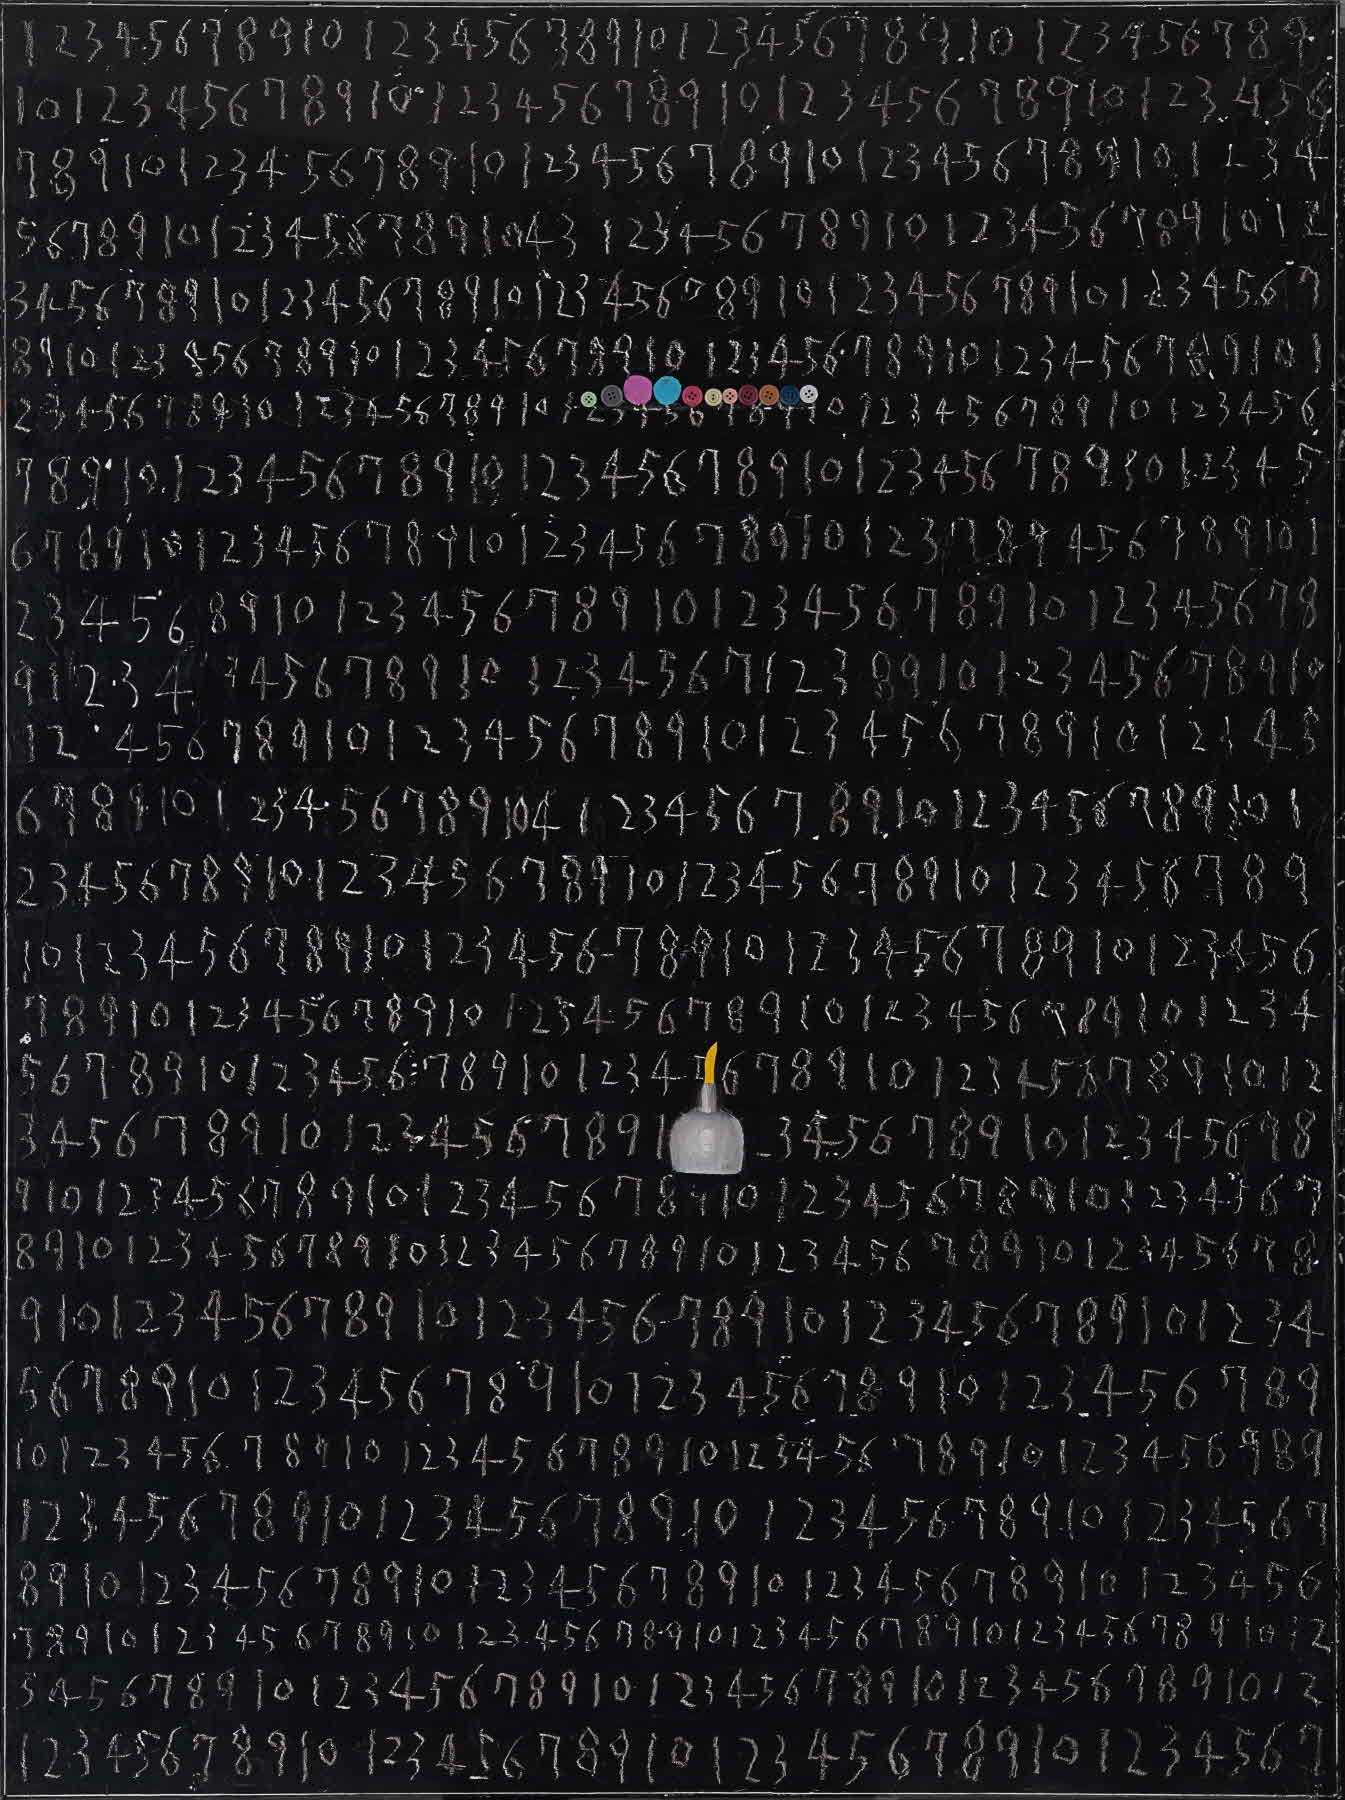 1 2 3 4 5 6 7 8 9 10 1 2 3 4 5 6 7 8 9 10 1 2 3 4 5 6 7 8 9 10 1 2 3 4 5 6 7 8 9
10 1 2 3 4 5 6 7 8 9 10 1 2 3 4 5 6 7 8 9 10 1 2 3 4 5 6 7 8 9 10 1 2 3 4 5 6
7 8 9 10 1 2 3 4 5 6 7 8 9 10 1 2 3 4 5 6 7 8 9 10 1 2 3 4 5 6 7 8 9 10 1 2 3 4
5 6 7 8 9 10 1 2 3 4 5 6 7 8 9 10 4 3 1 2 3 4 5 6 7 8 9 10 1 2 3 4 5 6 7 8 9 10 1 2
3 4 5 6 7 8 9 10 1 2 3 4 5 6 7 8 9 10 1 2 3 4 5 6 7 8 9 10 1 2 3 4 5 6 7 8 9 10 1 2 3 4 5 6 7
8 9 10 1 2 3 4 5 6 7 8 9 10 1 2 3 4 5 6 7 8 9 10 1 2 3 4 5 6 7 8 9 10 1 2 3 4 5 6 7 8 9 10 1
2 3 4 5 6 7 8 9 10 1 2 3 4 5 6 7 8 9 10 1 2 3 4 5 6 7 8 9 10 1 2 3 4 5 6 7 8 9 10 1 2 3 4 5 6
7 8 9 10 1 2 3 4 5 6 7 8 9 10 1 2 3 4 5 6 7 8 9 10 1 2 3 4 5 6 7 8 9 10 1 2 3 4 5
6 7 8 9 10 1 2 3 4 5 6 7 8 9 10 1 2 3 4 5 6 7 8 9 10 1 2 3 7 8 9 4 5 6 7 8 9 10 1
2 3 4 5 6 8 9 10 1 2 3 4 5 6 7 8 9 10 1 2 3 4 5 6 7 8 9 10 1 2 3 4 5 6 7 8
9 1 2 3 4 3 4 5 6 7 8 9 10 1 2 3 4 5 6 7 1 2 3 8 9 10 1 2 3 4 5 6 7 8 9 10
1 2 4 5 6 7 8 9 10 1 2 3 4 5 6 7 8 9 10 1 2 3 4 5 6 7 8 9 10 1 2 3 4 5
6 7 8 9 10 1 2 3 4 5 6 7 8 9 10 4 1 2 3 4 5 6 7 8 9 10 1 2 3 4 5 6 7 8 9 10 1
2 3 4 5 6 7 8 9 10 1 2 3 4 5 6 7 8 9 10 1 2 3 4 5 6 7 8 9 10 1 2 3 4 5 6 7 8 9
10 1 2 3 4 5 6 7 8 9 10 1 2 3 4 5 6 7 8 9 10 1 2 3 4 5 6 7 8 9 10 1 2 3 4 5 6
7 8 9 10 1 2 3 4 5 6 7 8 9 10 1 2 3 4 5 6 7 8 9 10 1 2 3 4 5 6 7 8 9 10 1 2 3 4
5 6 7 8 9 10 1 2 3 4 5 6 7 8 9 10 1 2 3 4 6 7 8 9 10 1 2 3 4 5 6 7 8 9 10 1 2
3 4 5 6 7 8 9 10 1 2 3 4 5 6 7 8 9 1 3 4 5 6 7 8 9 10 1 2 3 4 5 6 7 8
9 10 1 2 3 4 5 6 7 8 9 10 1 2 3 4 5 6 7 8 9 10 1 2 3 4 5 6 7 8 9 10 1 2 3 4 5 6 7
8 9 10 1 2 3 4 5 6 7 8 9 10 3 2 3 4 5 6 7 8 9 10 1 2 3 4 5 6 7 8 9 10 1 2 3 4 5 6 7 8
9 10 1 2 3 4 5 6 7 8 9 10 1 2 3 4 5 6 7 8 9 10 1 2 3 4 5 6 7 8 9 10 1 2 3 4
5 6 7 8 9 10 1 2 3 4 5 6 7 8 9 10 1 2 3 4 5 6 7 8 9 10 1 2 3 4 5 6 7 8 9
10 1 2 3 4 5 6 7 8 9 10 1 2 3 4 5 6 7 8 9 10 1 2 3 4 5 6 7 8 9 10 1 2 3 4 5 6 9 8 9
1 2 3 4 5 6 7 8 9 10 1 2 3 4 5 6 7 8 9 10 1 2 3 4 5 6 7 8 9 10 1 2 3 4 5 6 7
8 9 10 1 2 3 4 5 6 7 8 9 10 1 2 3 4 5 6 7 8 9 10 1 2 3 4 5 6 7 8 9 10 1 2 3 4 5 6
7 8 9 10 1 2 3 4 5 6 7 8 9 10 1 2 3 4 5 6 7 8 9 10 1 2 3 4 5 6 7 8 9 10 1 2 3 4 5 6 7 8 9 10 1 2
3 4 5 6 7 8 9 10 1 2 3 4 5 6 7 8 9 10 1 2 3 4 5 6 7 8 9 10 1 2 3 4 5 6 7 8 9 10 1 2
1 2 3 4 5 6 7 8 9 10 1 2 3 4 5 6 7 8 9 10 1 2 3 4 5 6 7 8 9 10 1 2 3 4 5 6 7